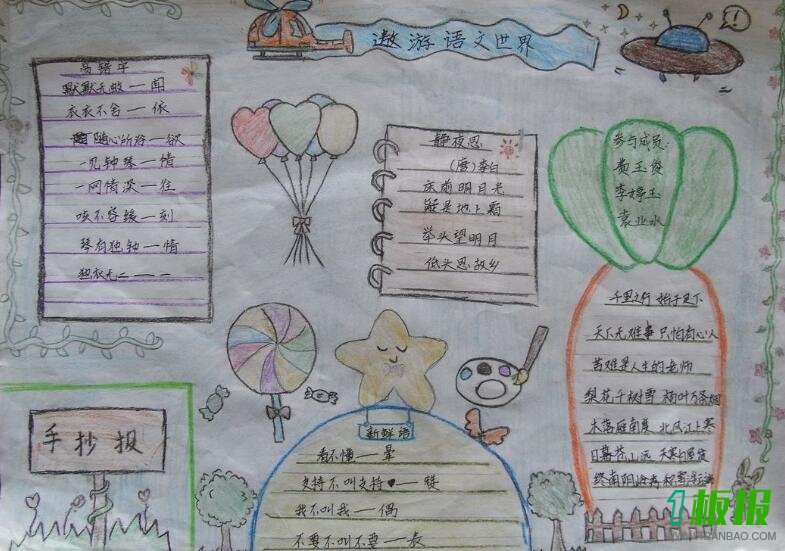 遨游语文世界
易错字
默默无敌一闻
衣衣不舍一依
随心所浴一欲
一见钟琴一情
一网情深一往
咳不容缓一刻
琴有独钟一情
独衣无二一一
静夜思
(唐)李白
床前明月光
疑是地上霜
举头望明月
低头思故乡
参与成员:
费玉俊
李婷玉
袁业水
千里之行 始于足下
天下无难事 只怕有心人
苦难是人生的老师
梨花千树雪 杨叶万条烟
木落雁南度 北风江上寒
日暮苍山远 天寒白屋贫
终南阴岭秀
新鲜语
看不懂一晕
支持不叫支持♥一赞
我不叫我一偶
不要不叫不要一表
手抄报
1板报
WWW.1BANBAO.COM